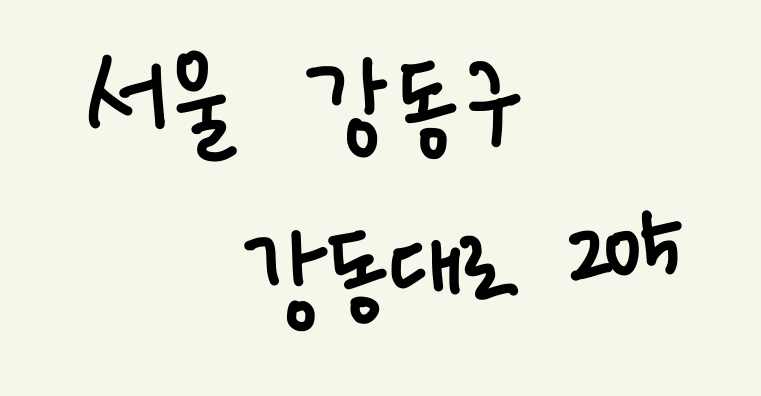 서울 강동구
강동대로 205